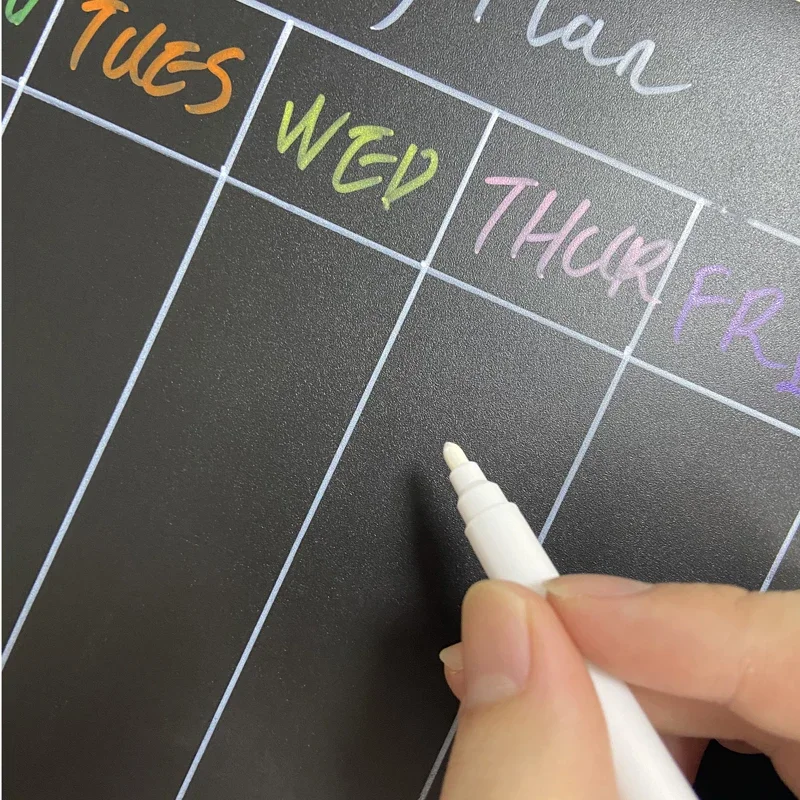 Plan
TUES WED THUR FRI